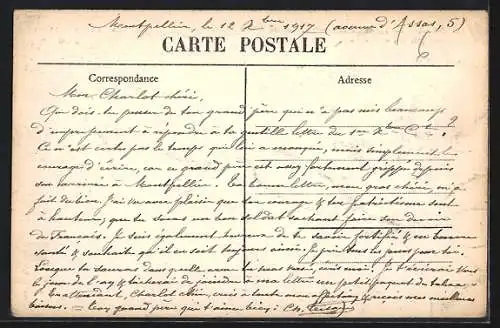 Montpellier, le 12 Xbre 1917 (avenue d'Assas, 5)
CARTE POSTALE
Correspondance
Adresse
Mon Charlot chéri,
Que dois-tu penser de ton grand père qui n'a pas mis beaucoup
d'empressement à répondre à ta gentille lettre du 1er Xbre ?
Ce n'est certes pas le temps qui lui a manqué, mais simplement le
courage d'écrire, car ce grand père est assez fortement grippé depuis
son arrivée à Montpellier. Ta bonne lettre, mon gros chéri, m'a
fait du bien. J'ai vu avec plaisir que ton courage & ton patriotisme sont
à hauteur, que tu seras un bon soldat sachant faire son devoir
de Français. Je suis également heureux de te savoir fortifié & en bonne
santé & souhaite qu'il en soit toujours ainsi. Je prie tous les jours pour toi.
Lorsque tu sauras dans quelle arme tu
le jour de l'an & tâcherai de joindre à ma lettre un petit paquet de tabac
En attendant, Charlot chéri, crois à toute mon affection & reçois mes meilleurs
baisers. = Ton grand père qui t'aime bien : Ch.